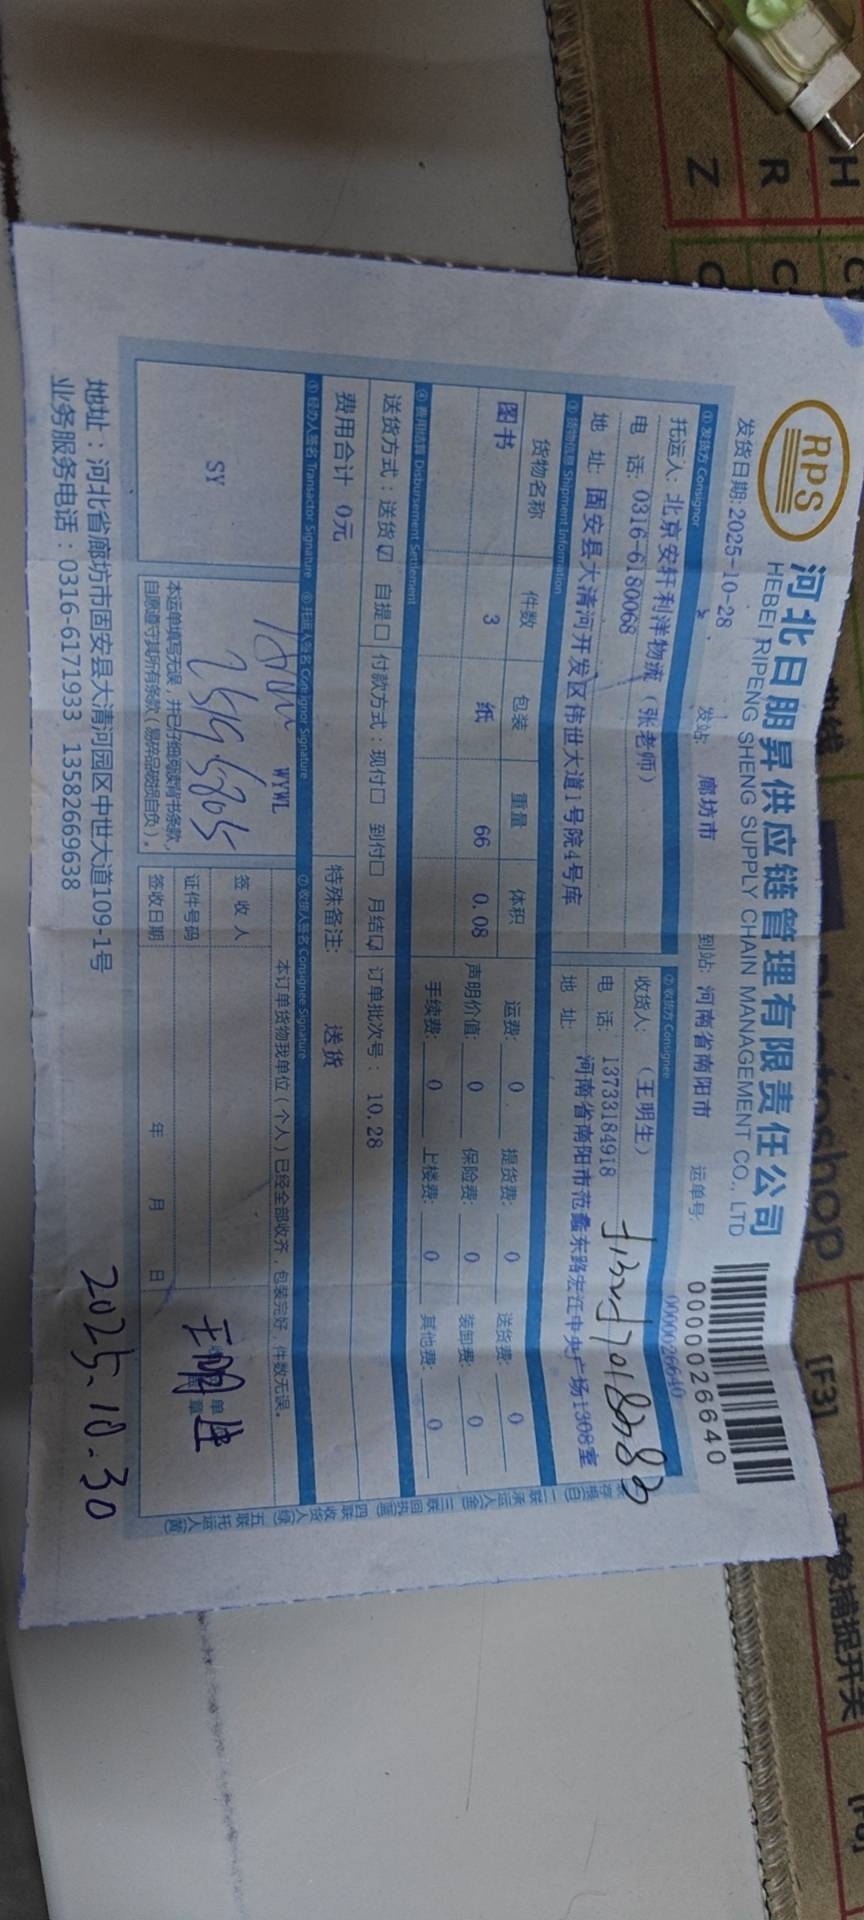 RPS
河北日朋昇供应链管理有限责任公司
HEBEI RIPENG SHENG SUPPLY CHAIN MANAGEMENT CO., LTD
0000026640
发货日期: 2025-10-28
发站: 廊坊市
到站: 河南省南阳市
运单号:
0000026640
① 发货方 Consignor
托运人: 北京安轩利洋物流（张老师）
电 话: 0316-6180068
地 址: 固安县大清河开发区伟世大道1号院4号库
② 收货方 Consignee
收货人: （王明生）
电 话: 13733184918
地 址: 河南省南阳市范蠡东路宏江中央广场1308室
③ 货物信息 Shipment Information
货物名称 件数 包装 重量 体积
图书 3 纸 66 0.08
运费: 0 提货费: 0 送货费: 0
声明价值: 0 保险费: 0 装卸费: 0
手续费: 0 上楼费: 0 其他费: 0
④ 费用结算 Disbursement Settlement
送货方式：送货☑ 自提☐
付款方式：现付☐ 到付☐ 月结☑
订单批次号： 10.28
费用合计 0元
特殊备注: 送货
⑤ 经办人签名 Transactor Signature
⑥ 托运人签名 Consignor Signature
⑦ 收货人签名 Consignee Signature
SY
WYWL
本运单填写无误，并已仔细阅读背书条款，
自愿遵守其所有条款（易碎品破损自负）。
本订单货物我单位（个人）已经全部收齐，包装完好，件数无误。
签 收 人
证件号码
签收日期
年 月 日
单
章
王明生
2025.10.30
地址：河北省廊坊市固安县大清河园区中世大道109-1号
业务服务电话：0316-6171933 13582669638
一联存根(白) 二联承运人(金) 三联回执(蓝) 四联收货人(绿) 五联托运人(黄)
H
R
Z
C
[F3]
对象捕捉开关